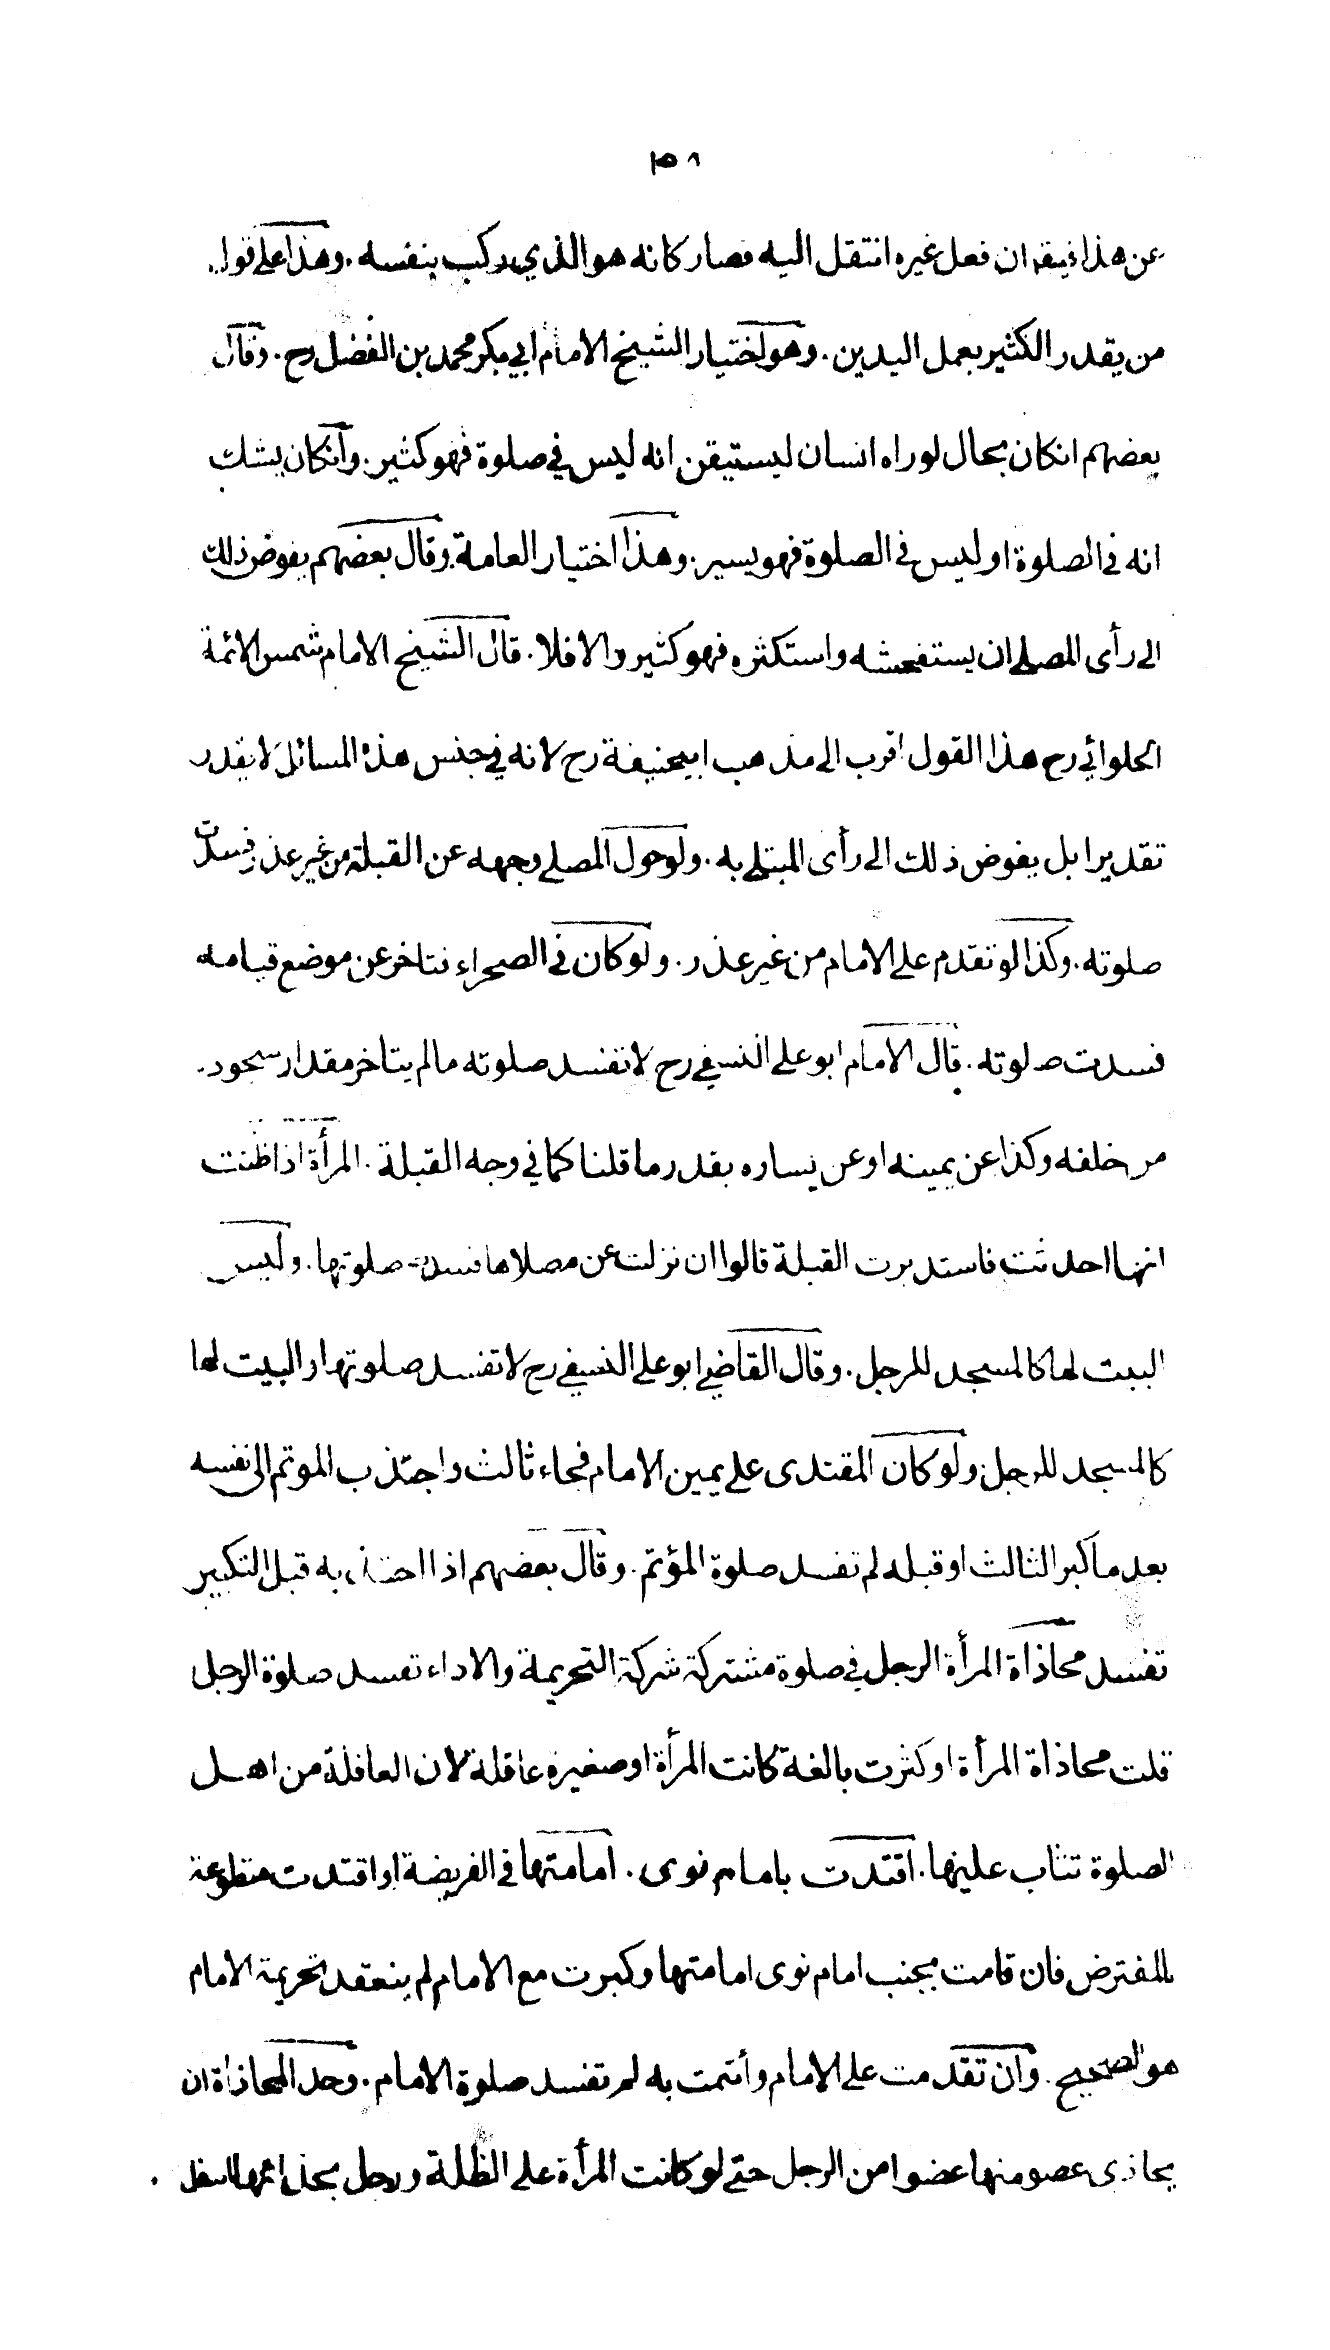 ١٥٨
عن هذا فيقه ان فعل غيره انتقل اليه فصار كانه هو الذي ركب بنفسه . وهذا على قول
من يقدر الكثير بعمل اليدين . وهو اختيار الشيخ الامام ابي بكر محمد بن الفضل رح . وقال
بعضهم انكان بحال لوراه انسان ليستيقن انه ليس في صلوة فهو كثير . وانكان يشك
انه في الصلوة او ليس في الصلوة فهو يسير . وهذا اختيار العامة . وقال بعضهم يفوض ذلك
الى رأى المصلے ان يستفحشه واستكثره فهو كثير والا فلا . قال الشيخ الامام شمس الائمة
الحلوائي رح هذا القول اقرب الى مذهب ابيحنيفة رح لانه في جنس هذه المسائل لا يقدر
تقديرا بل يفوض ذلك الى رأى المبتلے به . ولو حول المصلے وجهه عن القبلة من غير عذر فسدت
صلوته . وكذا لو تقدم على الامام من غير عذر . ولو كان في الصحراء فتاخر عن موضع قيامه
فسدت صلوته . قال الامام ابو على النسفي رح لا تفسد صلوته ما لم يتاخر مقدار سجود .
من خلفه وكذا عن يمينه او عن يساره بقدر ما قلنا كما في وجه القبلة . المرأة اذا ظنت
انها احدثت فاستدبرت القبلة قالوا ان نزلت عن مصلاها فسدت صلوتها . وليس
البيت لها كالمسجد للرجل . وقال القاضي ابو على النسفي رح لا تفسد صلوتها والبيت لها
كالمسجد للرجل ولو كان المقتدى على يمين الامام فجاء ثالث واجتذب الموتم الى نفسه
بعد ما كبر الثالث او قبله لم تفسد صلوة المؤتم . وقال بعضهم اذا اجتذبه قبل التكبير
تفسد محاذاة المرأة الرجل في صلوة مشتركة شركة التحريمة والاداء تفسد صلوة الرجل
قلت محاذاة المرأة او كثرت بالغة كانت المرأة او صغيرة عاقلة لان العاقلة من اهل
الصلوة تثاب عليها . اقتدت بامام نوى . امامتها في الفريضة او اقتدت متطوعة
بالمفترض فان قامت بجنب امام نوى امامتها وكبرت مع الامام لم ينعقد تحريمة الامام
هو الصحيح . وان تقدمت على الامام وأتمت به لم تفسد صلوة الامام . وحد المحاذاة ان
يحاذى عضو منها عضوا من الرجل حتى لو كانت المرأة على الظلة ورجل بحذائها اسفل .